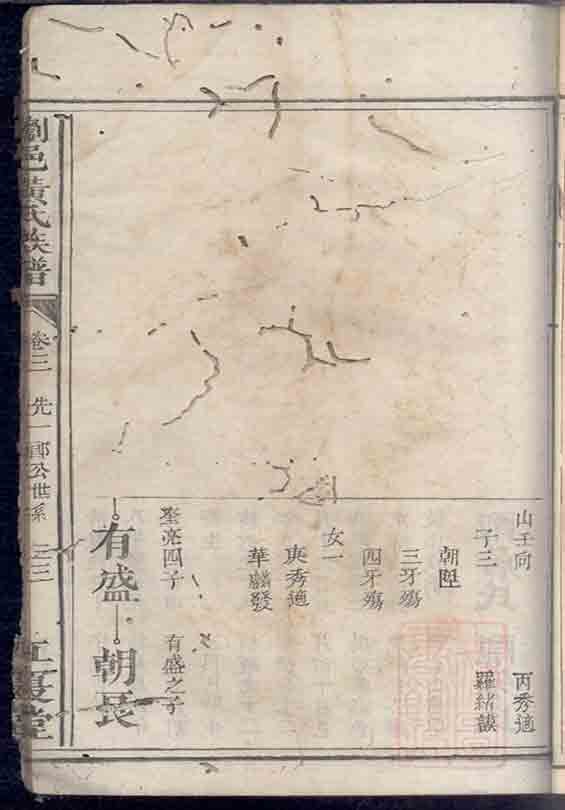 山壬向
丙秀適
子三
羅緒謨
朝陞
三牙殤
四牙殤
女一
庚秀適
華麟發
聖亮四子
有盛之子
有盛
朝長
瀏邑黃氏族譜
卷三
先一郎公世系
三三
江夏堂